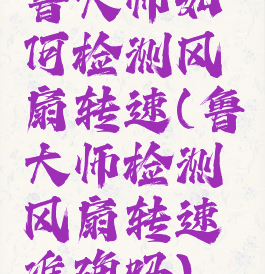 鲁大师如
何检测风
扇转速(鲁
大师检测
风扇转速
准确吗)